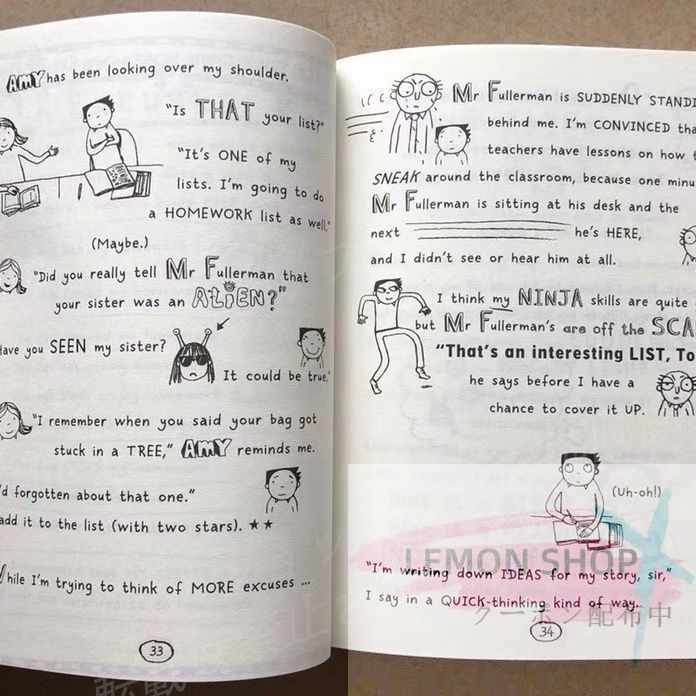 AMY has been looking over my shoulder.
"Is THAT your list?"
"It's ONE of my
lists. I'm going to do
a HOMEWORK list as well."
(Maybe.)
"Did you really tell Mr Fullerman that
your sister was an ALIEN?"
Have you SEEN my sister?
It could be true."
"I remember when you said your bag got
stuck in a TREE," AMY reminds me.
'd forgotten about that one."
add it to the list (with two stars). ★★
While I'm trying to think of MORE excuses ...
33
Mr Fullerman is SUDDENLY STANDI
behind me. I'm CONVINCED tha
teachers have lessons on how t
SNEAK around the classroom, because one minu
Mr Fullerman is sitting at his desk and the
next he's HERE,
and I didn't see or hear him at all.
I think my NINJA skills are quite
but Mr Fullerman's are off the SCA
"That's an interesting LIST, To
he says before I have a
chance to cover it UP.
(Uh-oh!)
LEMON SHOP
"I'm writing down IDEAS for my story, sir,"
I say in a QUICK-thinking kind of way.
クーポン配布中
34